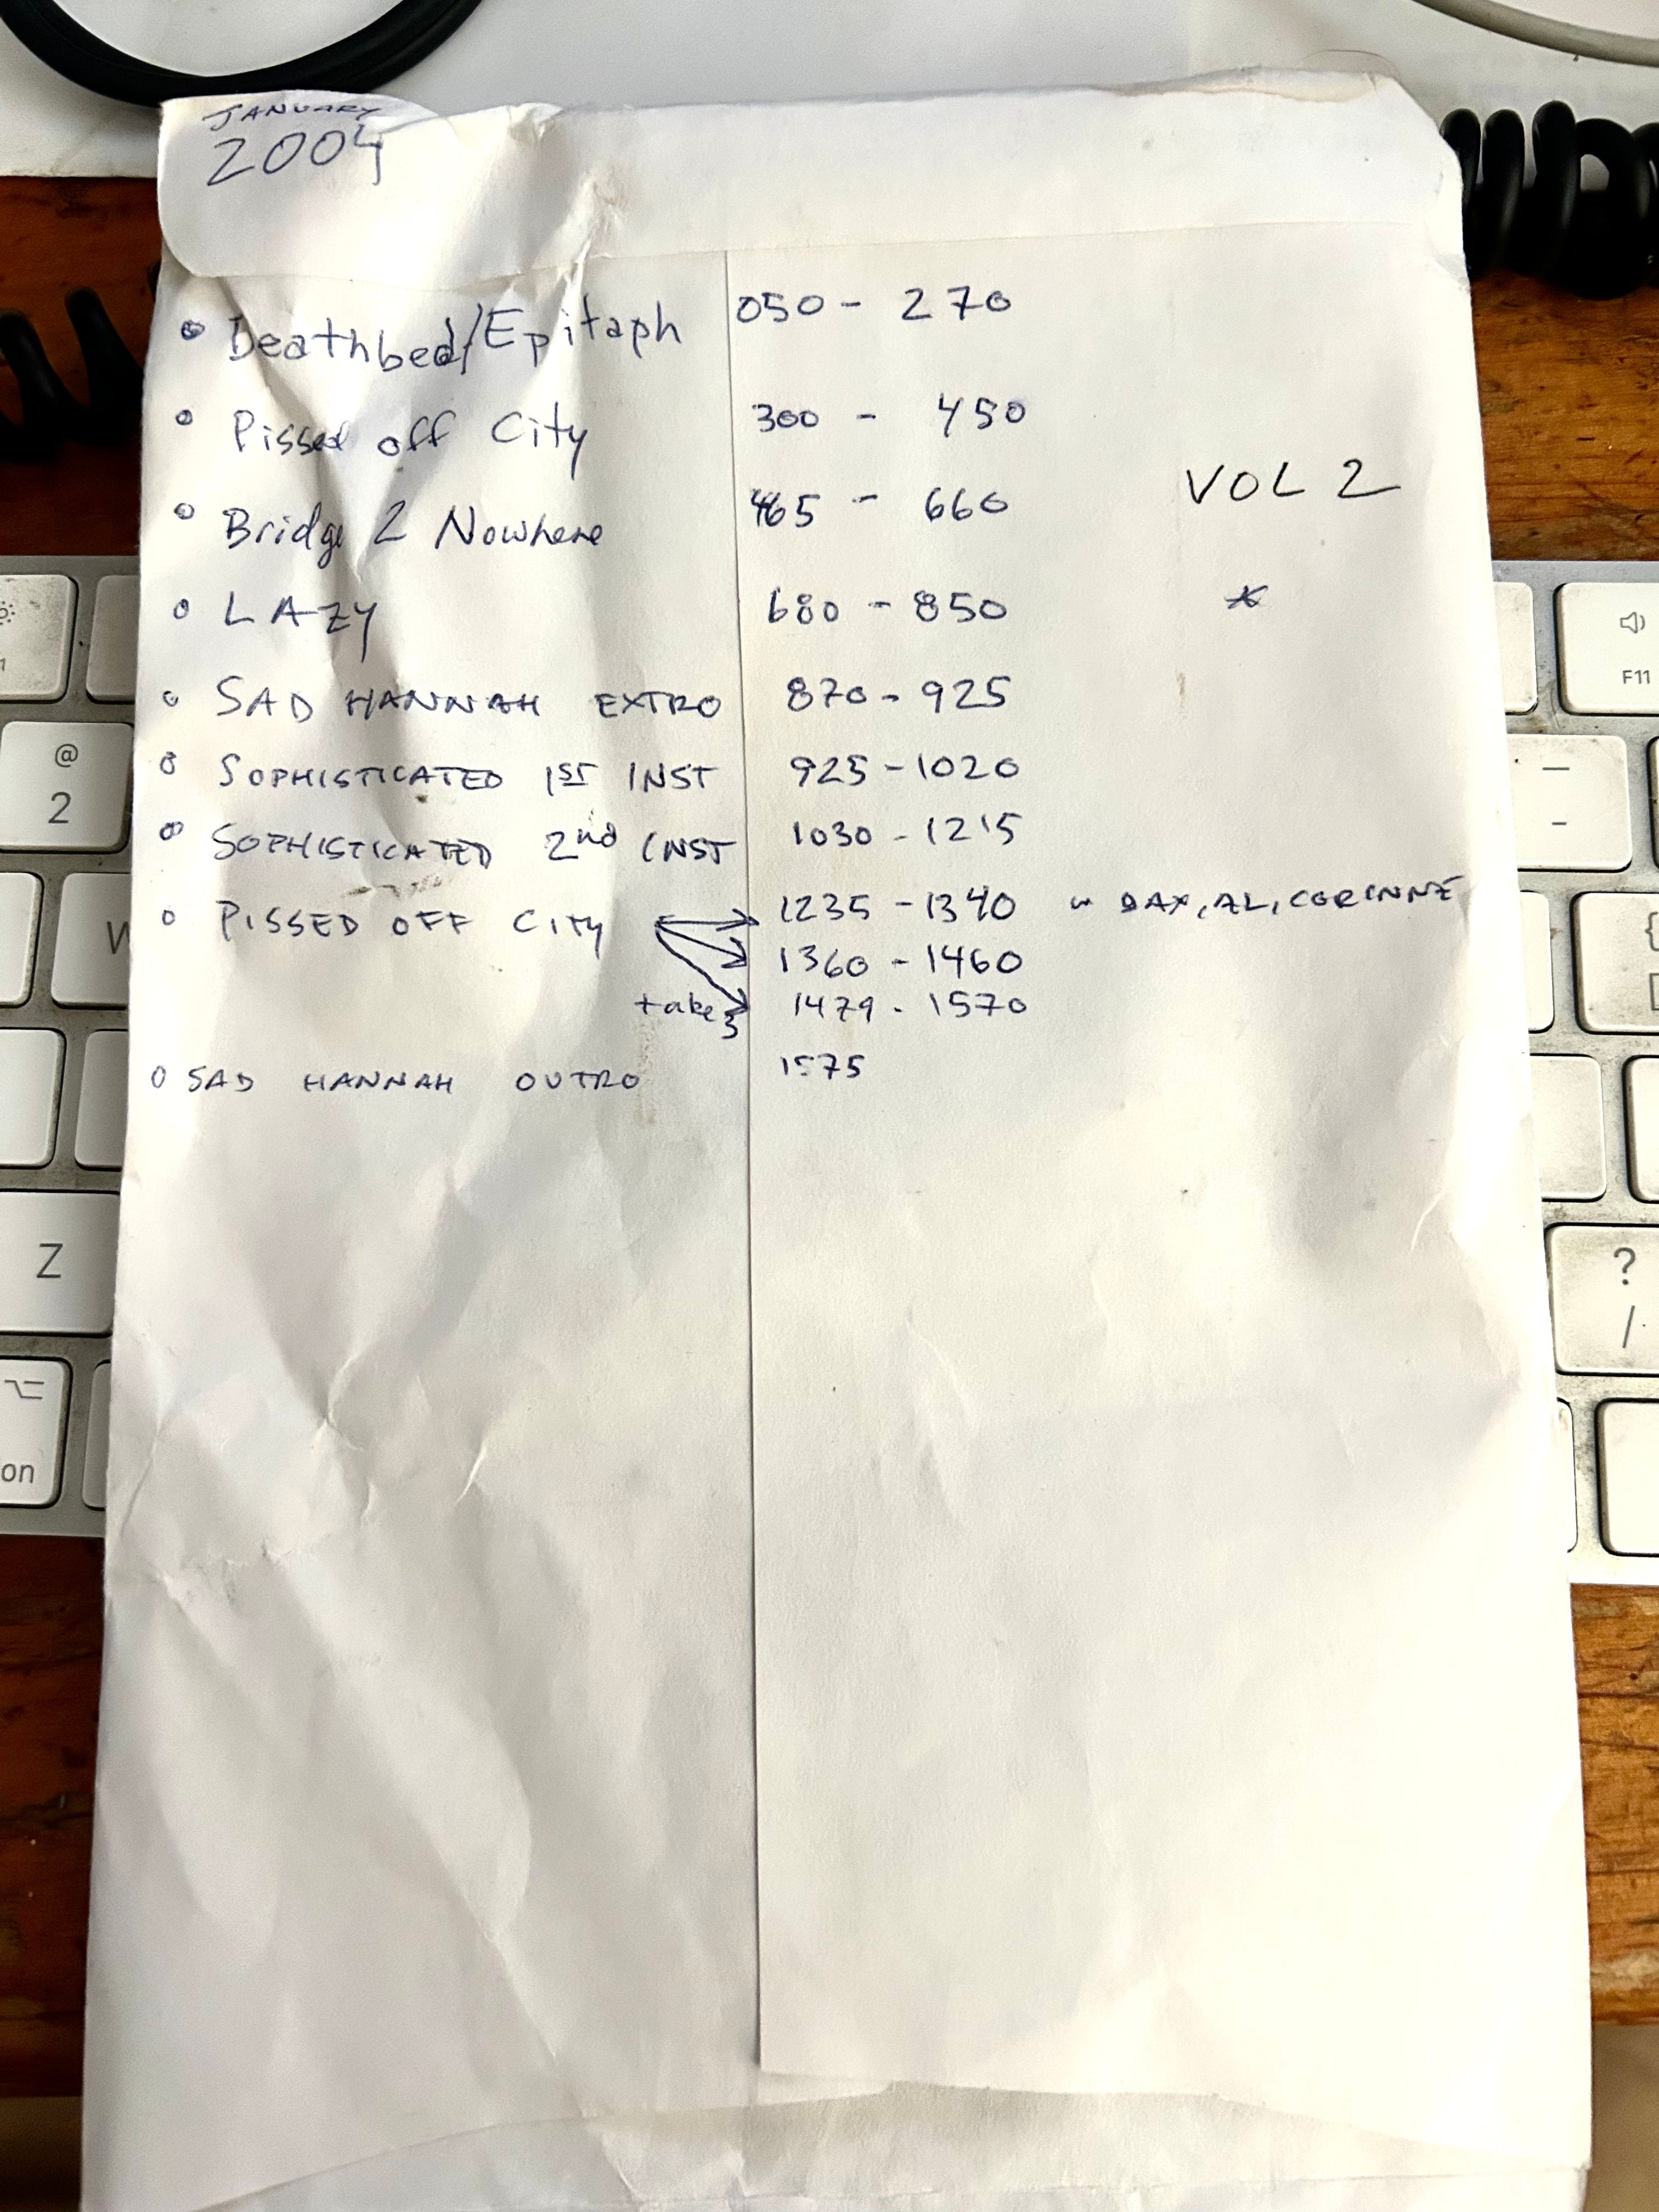 JANUARY
2004
Deathbed/Epitaph 050 - 270
Pissed off City 300 - 450
VOL 2
Bridge 2 Nowhere 465 - 660
LAZY 680 - 850 *
SAD HANNAH EXTRO 870 - 925
SOPHISTICATED 1ST INST 925 - 1020
SOPHISTICATED 2nd INST 1030 - 1215
PISSED OFF CITY 1235 - 1340 w DAX, AL, CORINNE
1360 - 1460
take 3 1479 - 1570
SAD HANNAH OUTRO 1575
@
2
W
Z
⌥
on
F11
—
-
{
[
?
/